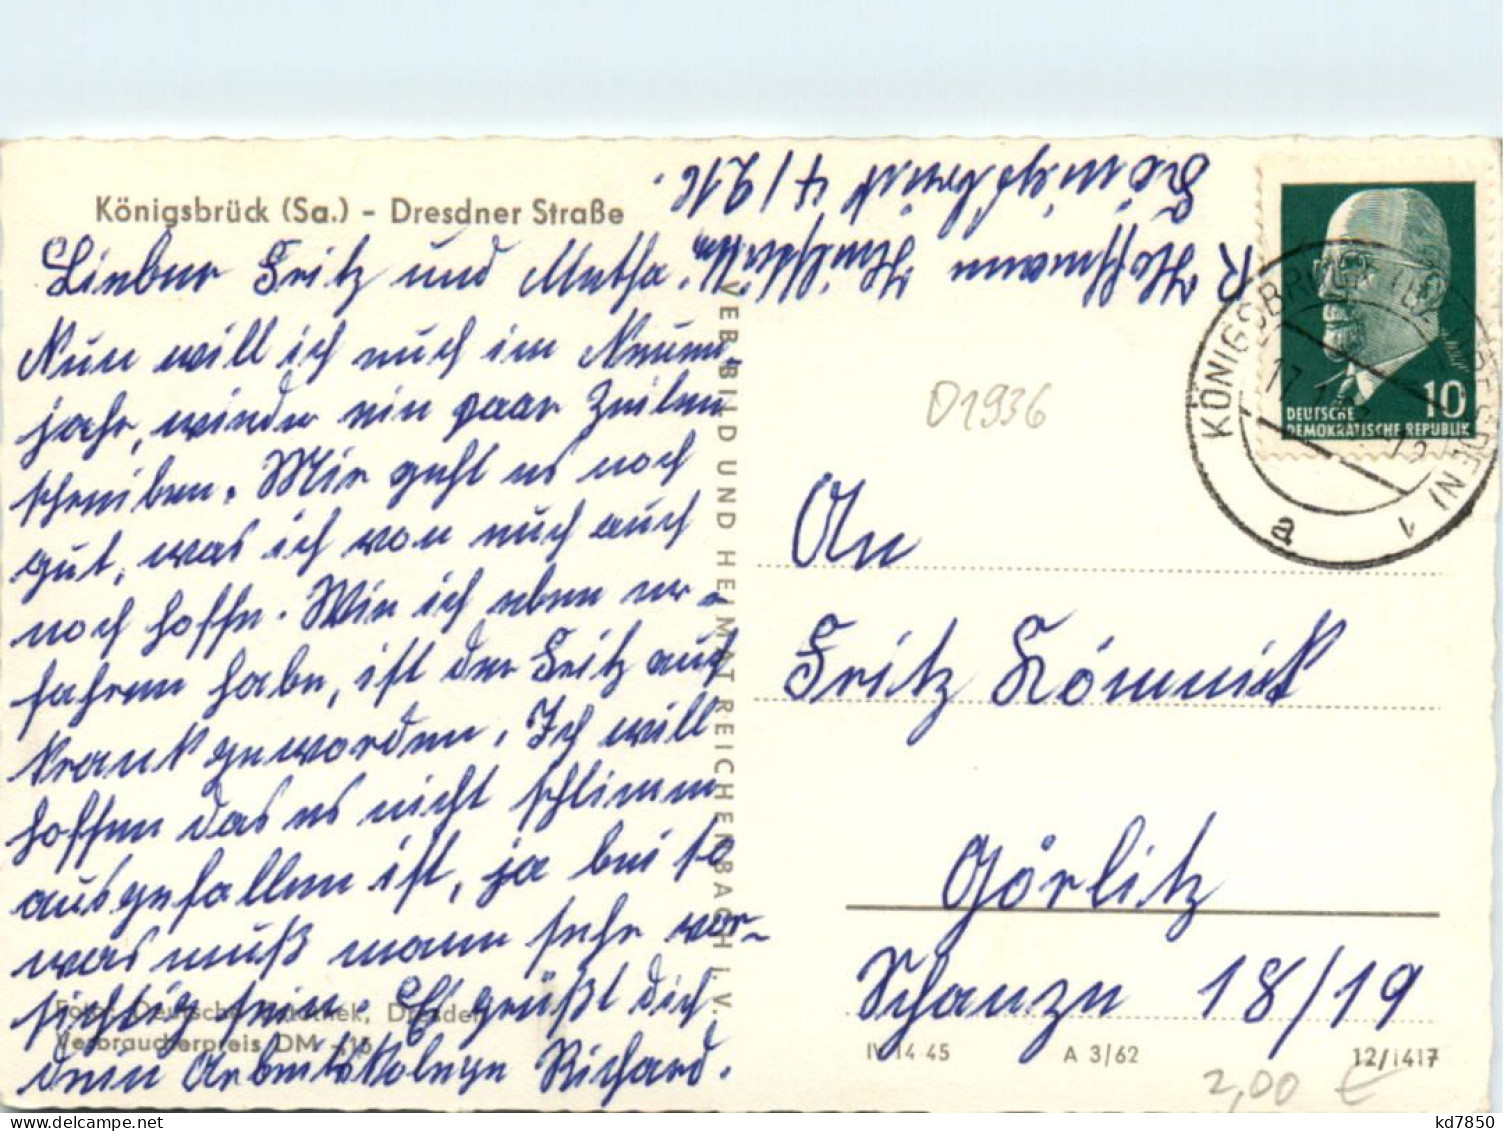 Königsbrück (Sa.) - Dresdner Straße
Lieber Fritz und Martha.
Nun will ich euch im Neuen-
jahr, wieder ein paar Zeilen
schreiben. Mir geht es noch
gut, was ich von euch auch
noch hoffe. Wie ich eben er-
fahren habe, ist der Fritz auch
krank geworden. Ich will
hoffen das es nicht schlimm
ausgefallen ist, ja bei so
was muß mann sehr vor-
sichtig sein. Es grüßt dich
dein Arbeitskolege Richard.
Foto: Deutsche Fotothek, Dresden
Verbraucherpreis DM -,15
R Hoffmann
Königsbrück 4/216.
VEB BILD UND HEIMAT REICHENBACH I. V.
10
DEUTSCHE
DEMOKRATISCHE REPUBLIK
KÖNIGSBRÜCK (BZ DRESDEN) 1
a
D1936
An
Fritz
Görlitz
Schanze 18/19
IV 14 45 A 3/62 12/1417
2,00 €
kd7850